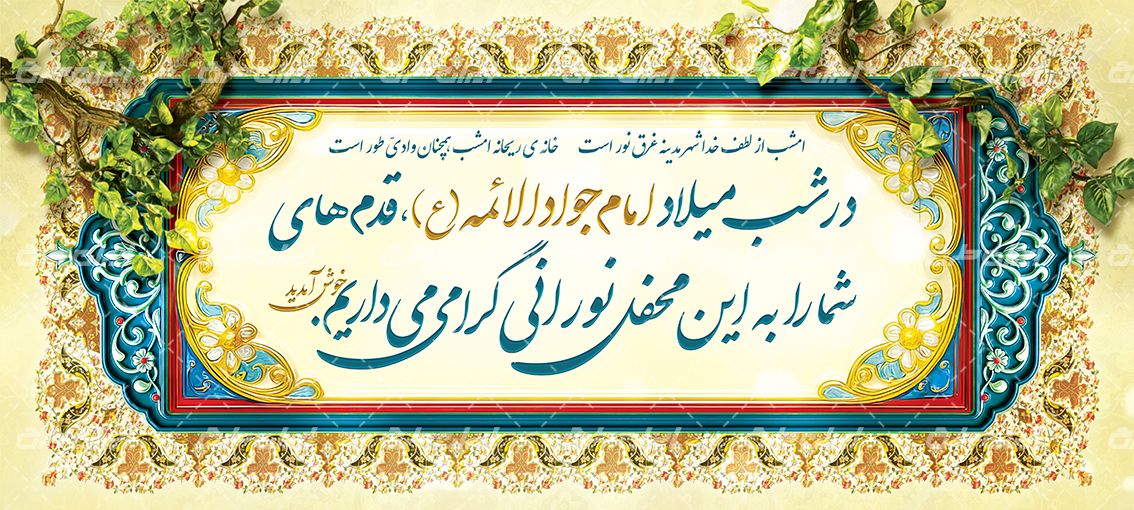 امشب از لطف خدا شهر مدینه غرق نور است   خانه ی ریحانه امشب همچنان وادیّ طور است
در شب میلاد امام جواد الائمه (ع)، قدم های
شما را به این محفل نورانی گرامی می داریم.
خوش آمدید